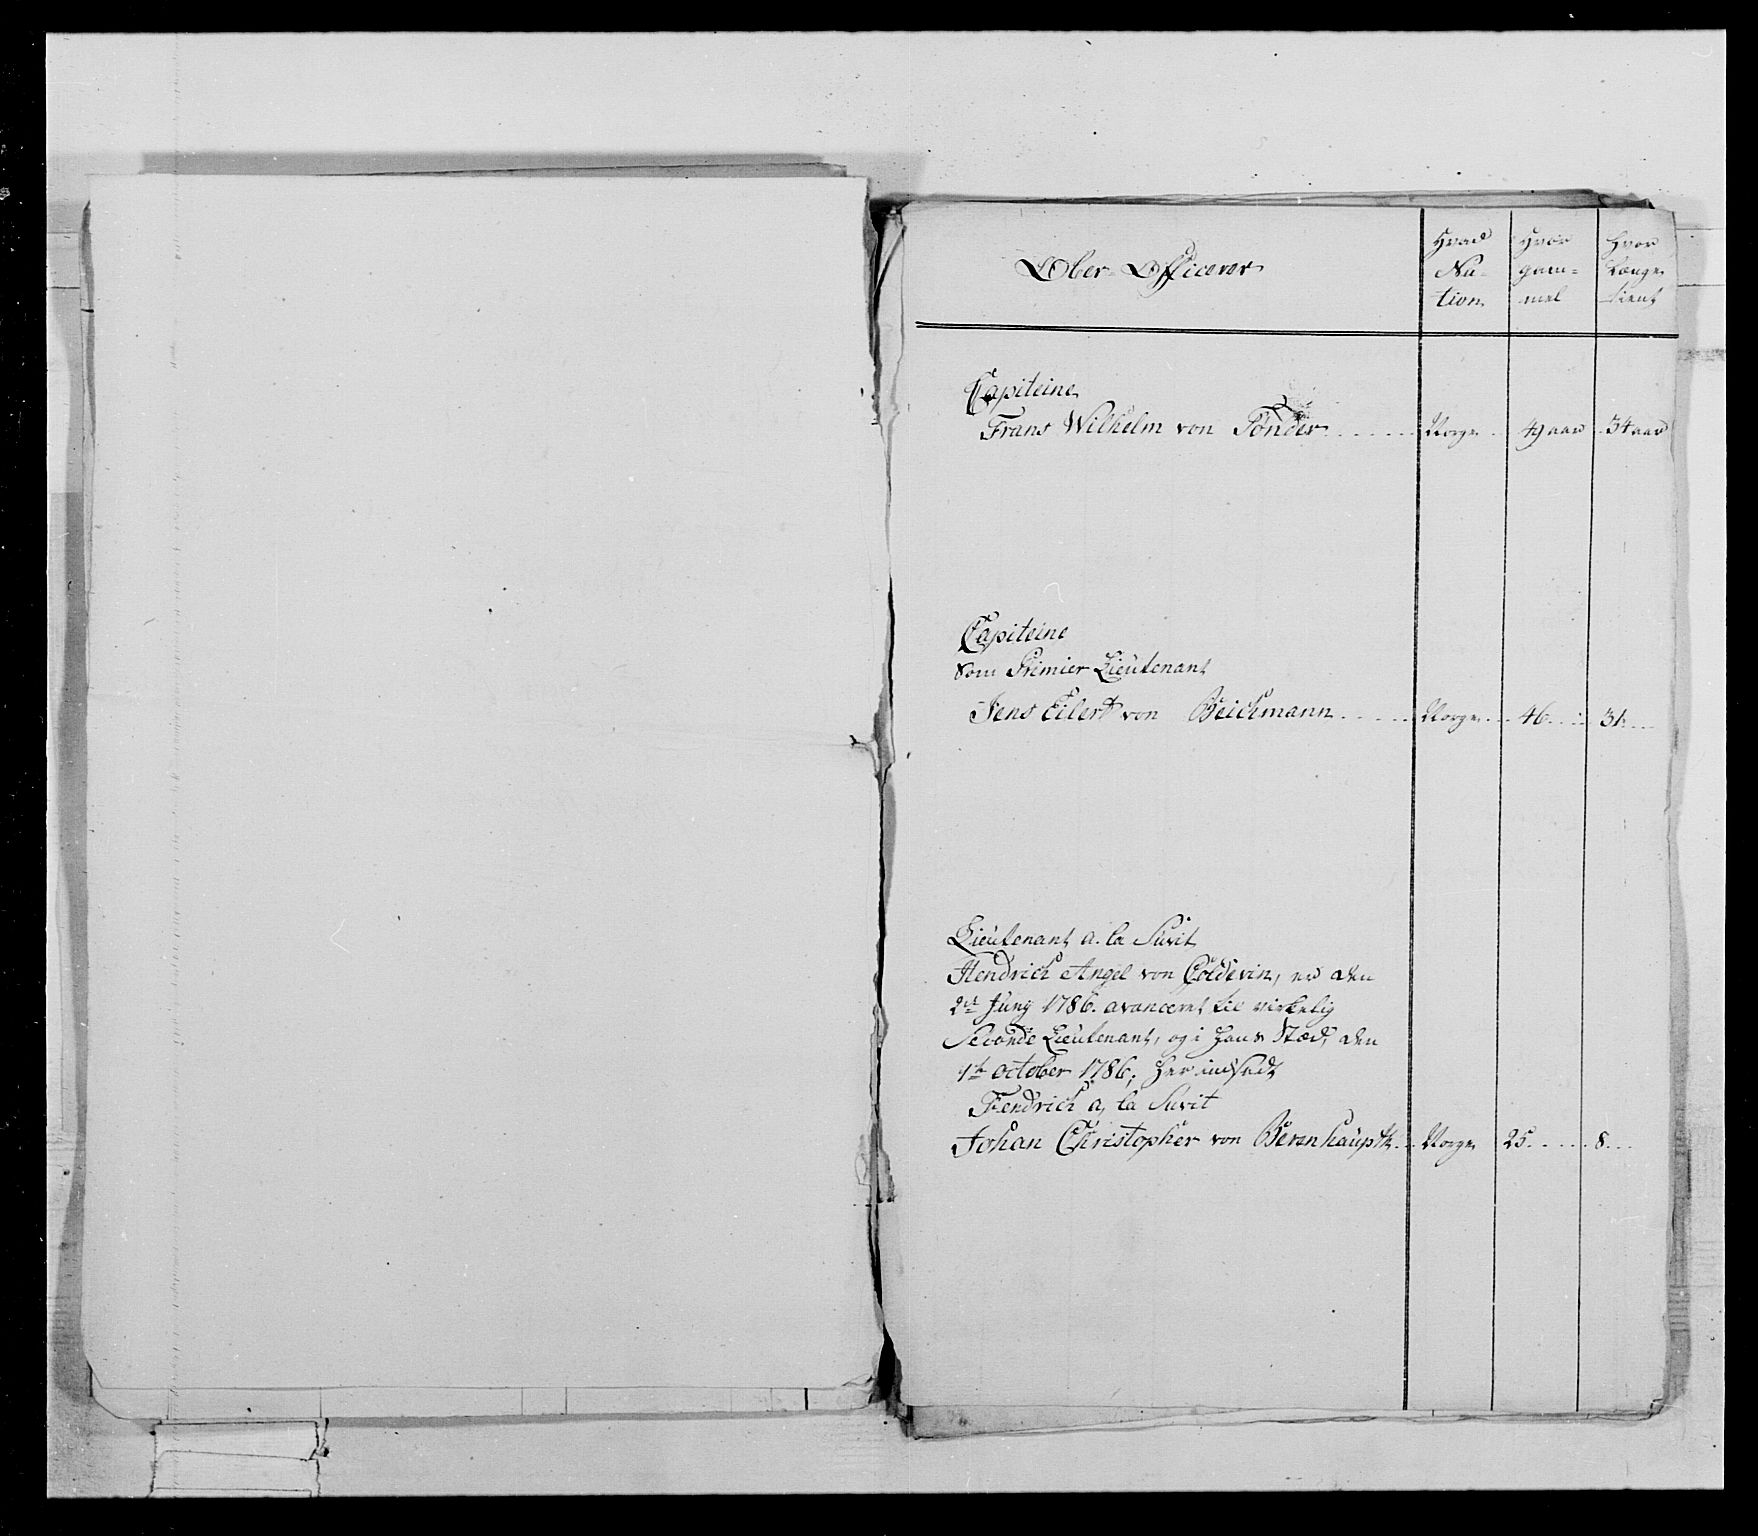 Ober-Officerer
Hvad Na-tion
Hvor gam-mel
Hvor Længe tient
Capiteine
Frans Wilhelm von Tönder Norge 49 aar 34 aar
Capiteine
Som Premier Lieutenant
Jens Eilert von Beichmann Norge 46 31
Lieutenant a. la Suvit
Hendrich Angel von Coldevin, er den
2det Juny 1786. avanceret til virkelig
Seconde Lieutenant, og i hans Stæd, den
1te october 1786; her indsadt
Fendrich a, la Suvit
Johan Christopher von Berenhaupth Norge 25 8